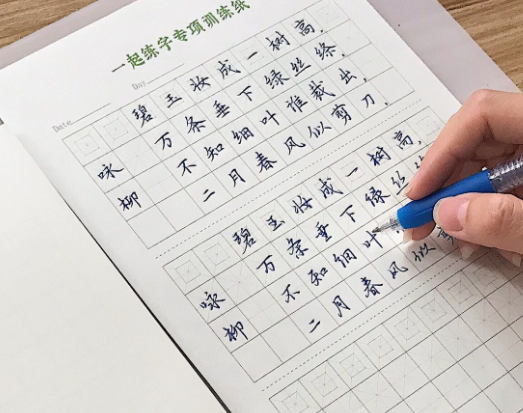 一起练字专项训练纸
Date
咏柳
碧玉妆成一树高，
万条垂下绿丝绦。
不知细叶谁裁出，
二月春风似剪刀。
咏柳
碧玉妆成一树高，
万条垂下绿丝
不知细叶
二月春风似